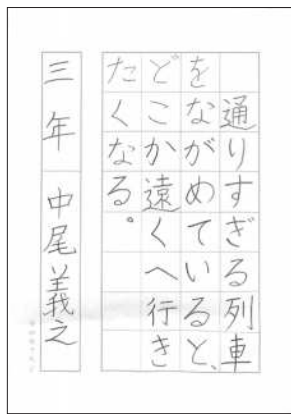 通りすぎる列車
をながめていると、
どこか遠くへ行き
たくなる。
三年 中尾義之